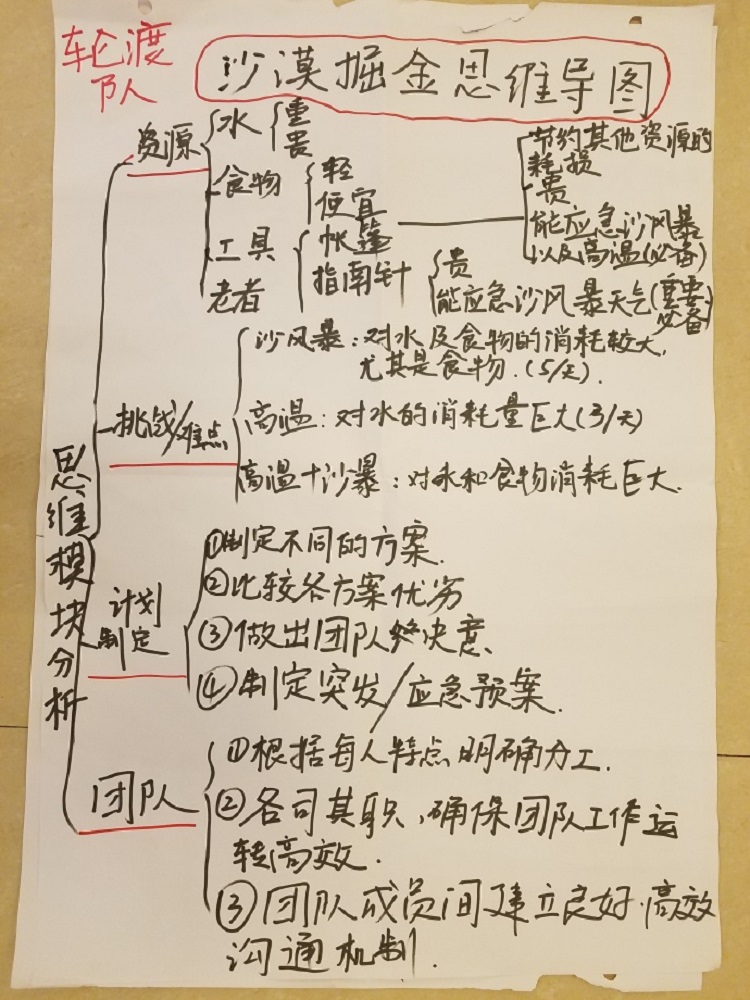 轮渡
队
沙漠掘金思维导图
思维模块分析
资源
水
重
贵
食物
轻
便宜
工具
帐篷
节约其他资源的
耗损
贵
能应急沙风暴
以及高温(必备)
指南针
贵
能应急沙风暴天气(重要
必备)
老者
挑战/难点
沙风暴：对水及食物的消耗较大,
尤其是食物.(5/天).
高温：对水的消耗量巨大(3/天)
高温+沙暴：对水和食物消耗巨大.
计划
制定
①制定不同的方案.
②比较各方案优劣
③做出团队终决意.
④制定突发/应急预案.
团队
①根据每人特点明确分工.
②各司其职,确保团队工作运
转高效.
③团队成员间建立良好.高效
沟通机制.